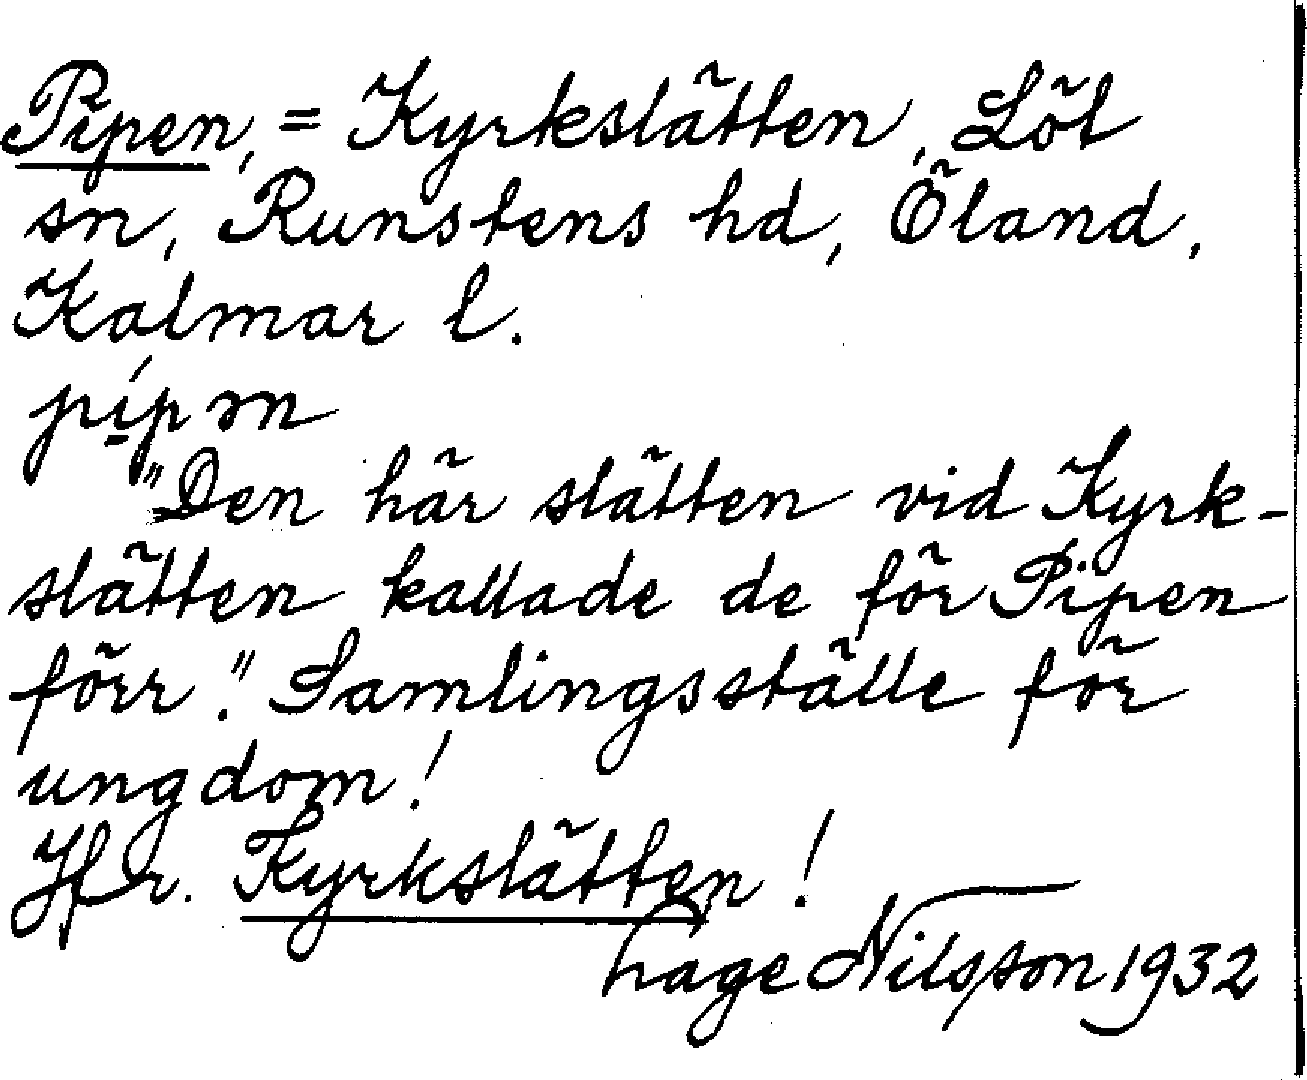 Pipen, = Kyrkslätten, Löt
sn, Runstens hd, Öland,
Kalmar l.
pípən
"Den här slätten vid Kyrk-
slätten kallade de för Pipen
förr." Samlingsställe för
ungdom!
Jfr. Kyrkslätten!
Hage Nilsson 1932